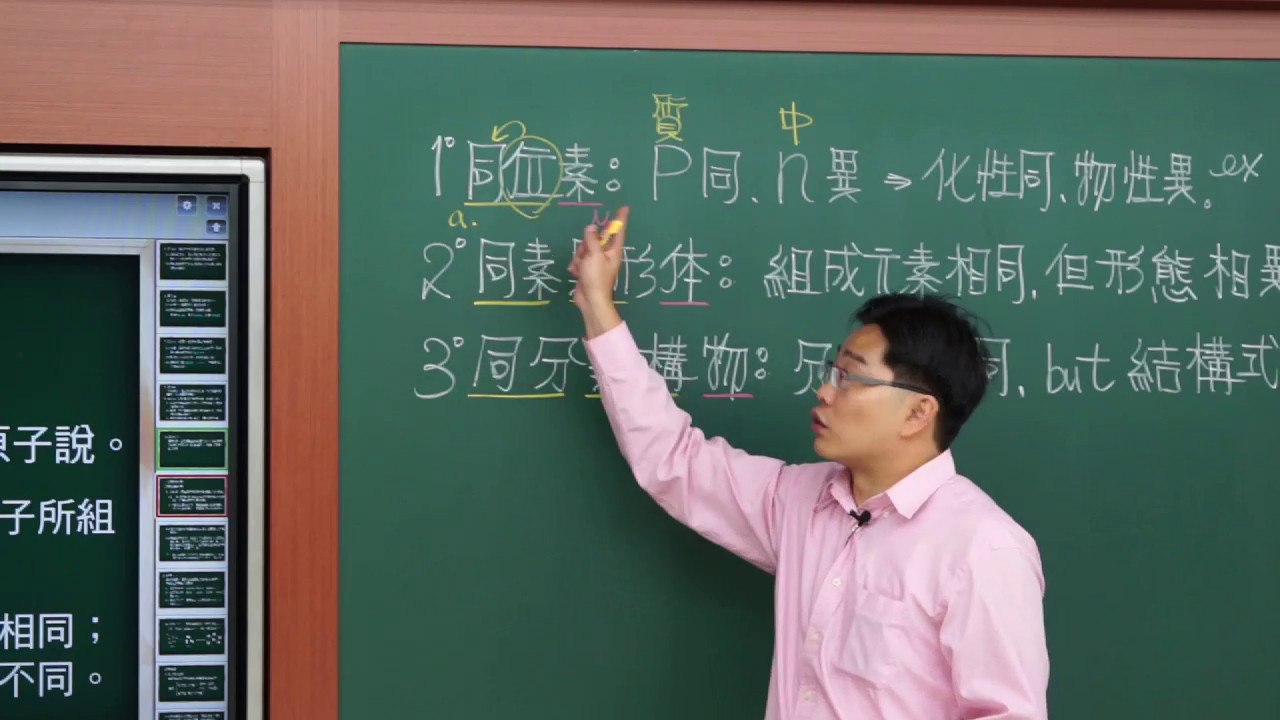 質 中
1° 同位素：P同、n異 ⇒ 化性同、物性異。ex
a.
2° 同素異形体：組成元素相同，但形態相異
3° 同分異構物：分 同，but 結構式
原子說。
子所組
相同；
不同。